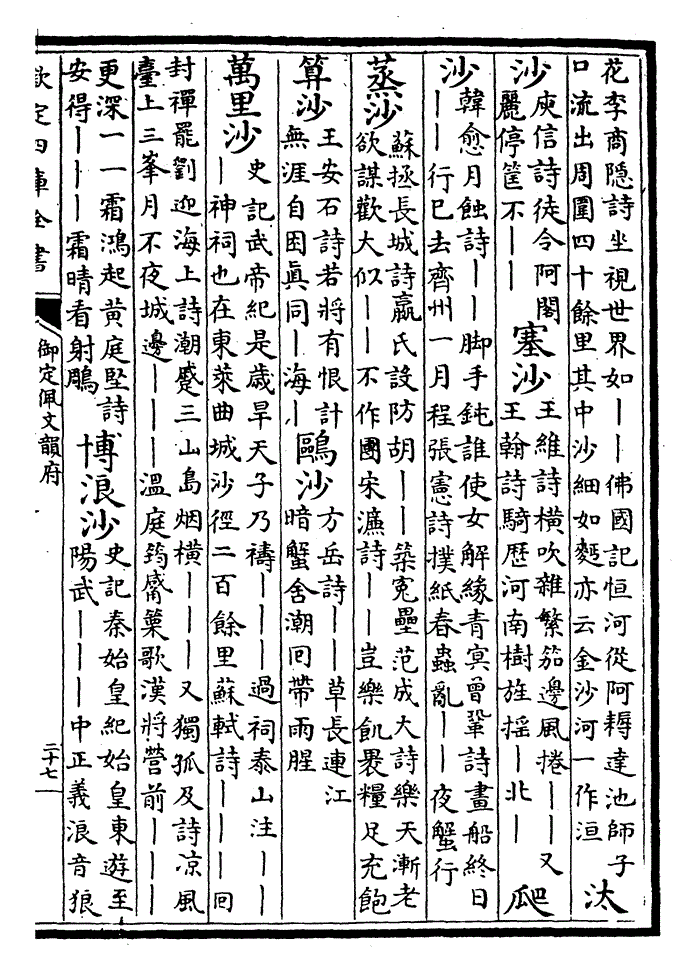 花李商隱詩坐視世界如——佛國記恒河從阿耨達池師子
口流出周圍四十餘里其中沙細如麫亦云金沙河一作洹
汰
沙
庾信詩徒令阿閣
麗停筐不——
塞沙
王維詩橫吹雜繁笳邊風捲——又
王翰詩騎歷河南樹旌揺—北—
爬
沙
韓愈月蝕詩——脚手鈍誰使女解緣青冥曾鞏詩畫船終日
——行已去齊州一月程張憲詩撲紙春蟲亂——夜蟹行
蒸沙
蘇拯長城詩嬴氏設防胡——築寃壘范成大詩樂天漸老
欲謀歡大似——不作團宋濂詩——豈樂飢褁糧足充飽
算沙
王安石詩若將有恨計
無涯自困眞同—海—
鷗沙
方岳詩——草長連江
暗蟹舍潮囘帶雨腥
萬里沙
史記武帝紀是歲旱天子乃禱———過祠泰山注——
—神祠也在東萊曲城沙徑二百餘里蘇軾詩———回
封禪罷劉迎海上詩潮蹙三山島烟橫———又獨孤及詩凉風
臺上三峯月不夜城邊———溫庭筠觱篥歌漢將營前———
更深一一霜鴻起黄庭堅詩
安得———霜晴看射鵰
博浪沙
史記秦始皇紀始皇東遊至
陽武———中正義浪音狼
欽定四庫全書
御定佩文韻府
二十七